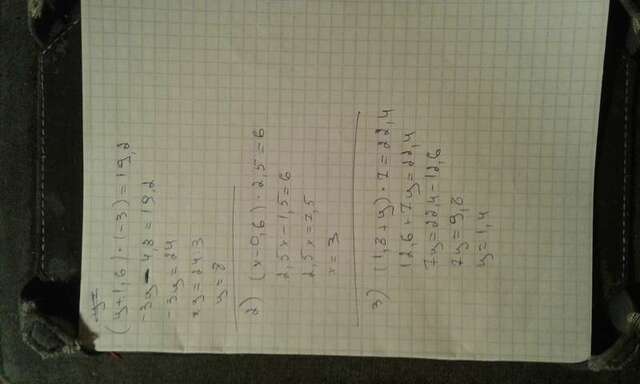 y=
(y+1,6)·(-3)=19,2
-3y-4,8=19,2
-3y=24
y=24:3
y=8
2) (x-0,6)·2,5=6
2,5x-1,5=6
2,5x=7,5
x=3
3) (1,8+y)·7=22,4
12,6+7y=22,4
7y=22,4-12,6
7y=9,8
y=1,4